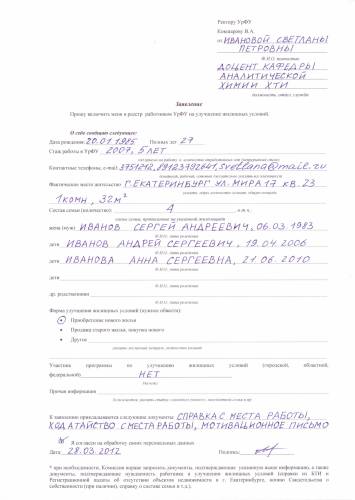 Ректору УрФУ
Кокшарову В.А.
от ИВАНОВОЙ СВЕТЛАНЫ
ПЕТРОВНЫ
Ф.И.О. полностью
ДОЦЕНТ КАФЕДРЫ
АНАЛИТИЧЕСКОЙ
ХИМИИ ХТИ
должность, отдел, служба
Заявление
Прошу включить меня в реестр работников УрФУ на улучшение жилищных условий.
О себе сообщаю следующее:
Дата рождения: 20.01.1985 Полных лет 27
Стаж работы в УрФУ 2007, 5 ЛЕТ
Контактные телефоны, e-mail 3751212, 89123792841, svetlana@mail.ru
Фактическое место жительство Г. ЕКАТЕРИНБУРГ УЛ. МИРА 17 КВ. 23
1 КОМН, 32М²
Состав семьи (количество): 4 чел.
жена (муж) ИВАНОВ СЕРГЕЙ АНДРЕЕВИЧ, 06.03.1983
Ф.И.О., дата рождения
дети ИВАНОВ АНДРЕЙ СЕРГЕЕВИЧ, 19.04.2006
Ф.И.О., дата рождения
дети ИВАНОВА АННА СЕРГЕЕВНА, 21.06.2010
Ф.И.О., дата рождения
дети
Ф.И.О., дата рождения
др. родственники
Ф.И.О., дата рождения
Форма улучшения жилищных условий (нужное обвести):
• Приобретение нового жилья
• Продажа старого жилья, покупка нового
• Другое
Участник программы по улучшению жилищных условий (городской, областной,
федеральной) НЕТ
Прочая информация
К заявлению прикладывается следующие документы СПРАВКА С МЕСТА РАБОТЫ,
ХОДАТАЙСТВО С МЕСТА РАБОТЫ, МОТИВАЦИОННОЕ ПИСЬМО
Я согласен на обработку своих персональных данных
Дата 28.03.2012 Подпись
* при необходимости, Комиссия вправе запросить документы, подтверждающие указанную выше информацию, а также
документы, подтверждающие нуждаемость работника в улучшении жилищных условий (справки из БТИ и
Регистрационной палаты об отсутствии объектов недвижимости в г. Екатеринбурге, копию Свидетельства о
собственности (при наличии), справку о составе семьи и т.д.).